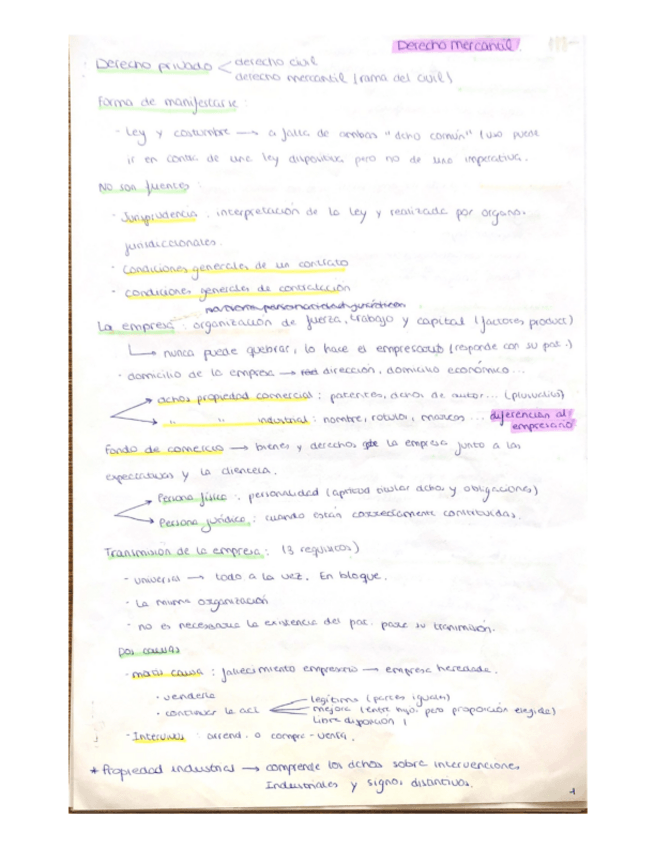 Derecho mercantil.
Derecho privado < derecho civil
derecho mercantil (rama del civil)
Forma de manifestarse:
- Ley y costumbre → a falta de ambas "dcho común" (uso puede
ir en contra de una ley dispositiva pero no de una imperativa.
No son fuentes:
- Jurisprudencia. interpretación de la ley y realizada por organos
jurisdiccionales.
- Condiciones generales de un contrato
- condiciones generales de contratación
La empresa: organización de fuerza, trabajo y capital (factores product)
→ nunca puede quebrar, lo hace el empresario (responde con su pat.)
- domicilio de la empresa → dirección, domicilio económico...
→ dchos propiedad comercial: patentes, dchos de autor... (plusvalías)
→ " " industrial: nombre, rotulo, marcas... diferencian al
empresario
Fondo de comercio → bienes y derechos de la empresa junto a las
expectativas y la clientela.
→ Persona física: personalidad (aptitud titular dchos y obligaciones)
→ Persona jurídica: cuando están correctamente constituidas.
Transmisión de la empresa: (3 requisitos)
- universal → todo a la vez. En bloque.
- La misma organización
- no es necesaria la existencia del pat. para su transmisión.
Dos causas
- mortis causa: fallecimiento empresario → empresa heredada.
- venderla
- continuar la act
legítima (partes iguales)
mejora (entre hijos pero proporción elegida)
libre disposición
- Intervivos: arrend. o compra-venta.
* Propiedad industrial → comprende los dchos sobre intervenciones
Industriales y signos distintivos.
1